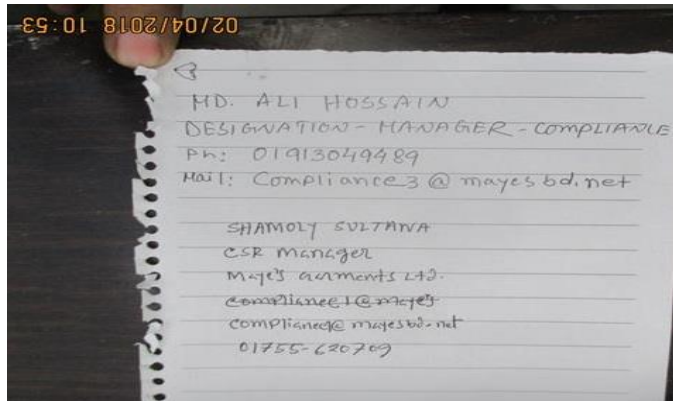 02/04/2018 10:53
MD. ALI HOSSAIN
DESIGNATION - MANAGER - COMPLIANCE
Ph: 01913049489
Mail: Compliance3@mayesbd.net
SHAMOLY SULTANA
CSR Manager
Maye's Garments Ltd.
compliance1@mayes
@mayesbd.net
01755-620709